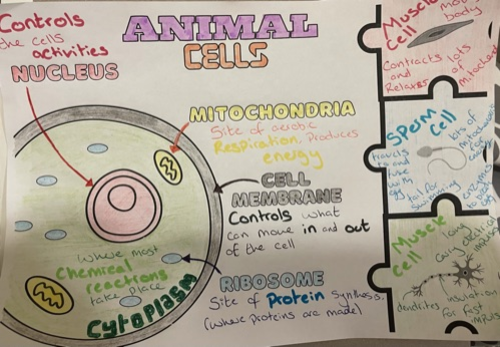 ANIMAL
CELLS
Controls
the cells
activities
NUCLEUS
MITOCHONDRIA
Site of aerobic
Respiration. Produces
energy
CELL
MEMBRANE
Controls what
can move in and out
of the cell
RIBOSOME
Site of Protein Synthesis.
(where proteins are made)
where most
chemical
reactions
take place
Cytoplasm
Muscle
Cell
body
Contracts
and
Relaxes
lots
of
Sperm
Cell
lots of
travels
to and
fuse
with
egg
tail for
swimming
Muscle
cell
long
carry electrical
dendrites
insulation
for fast